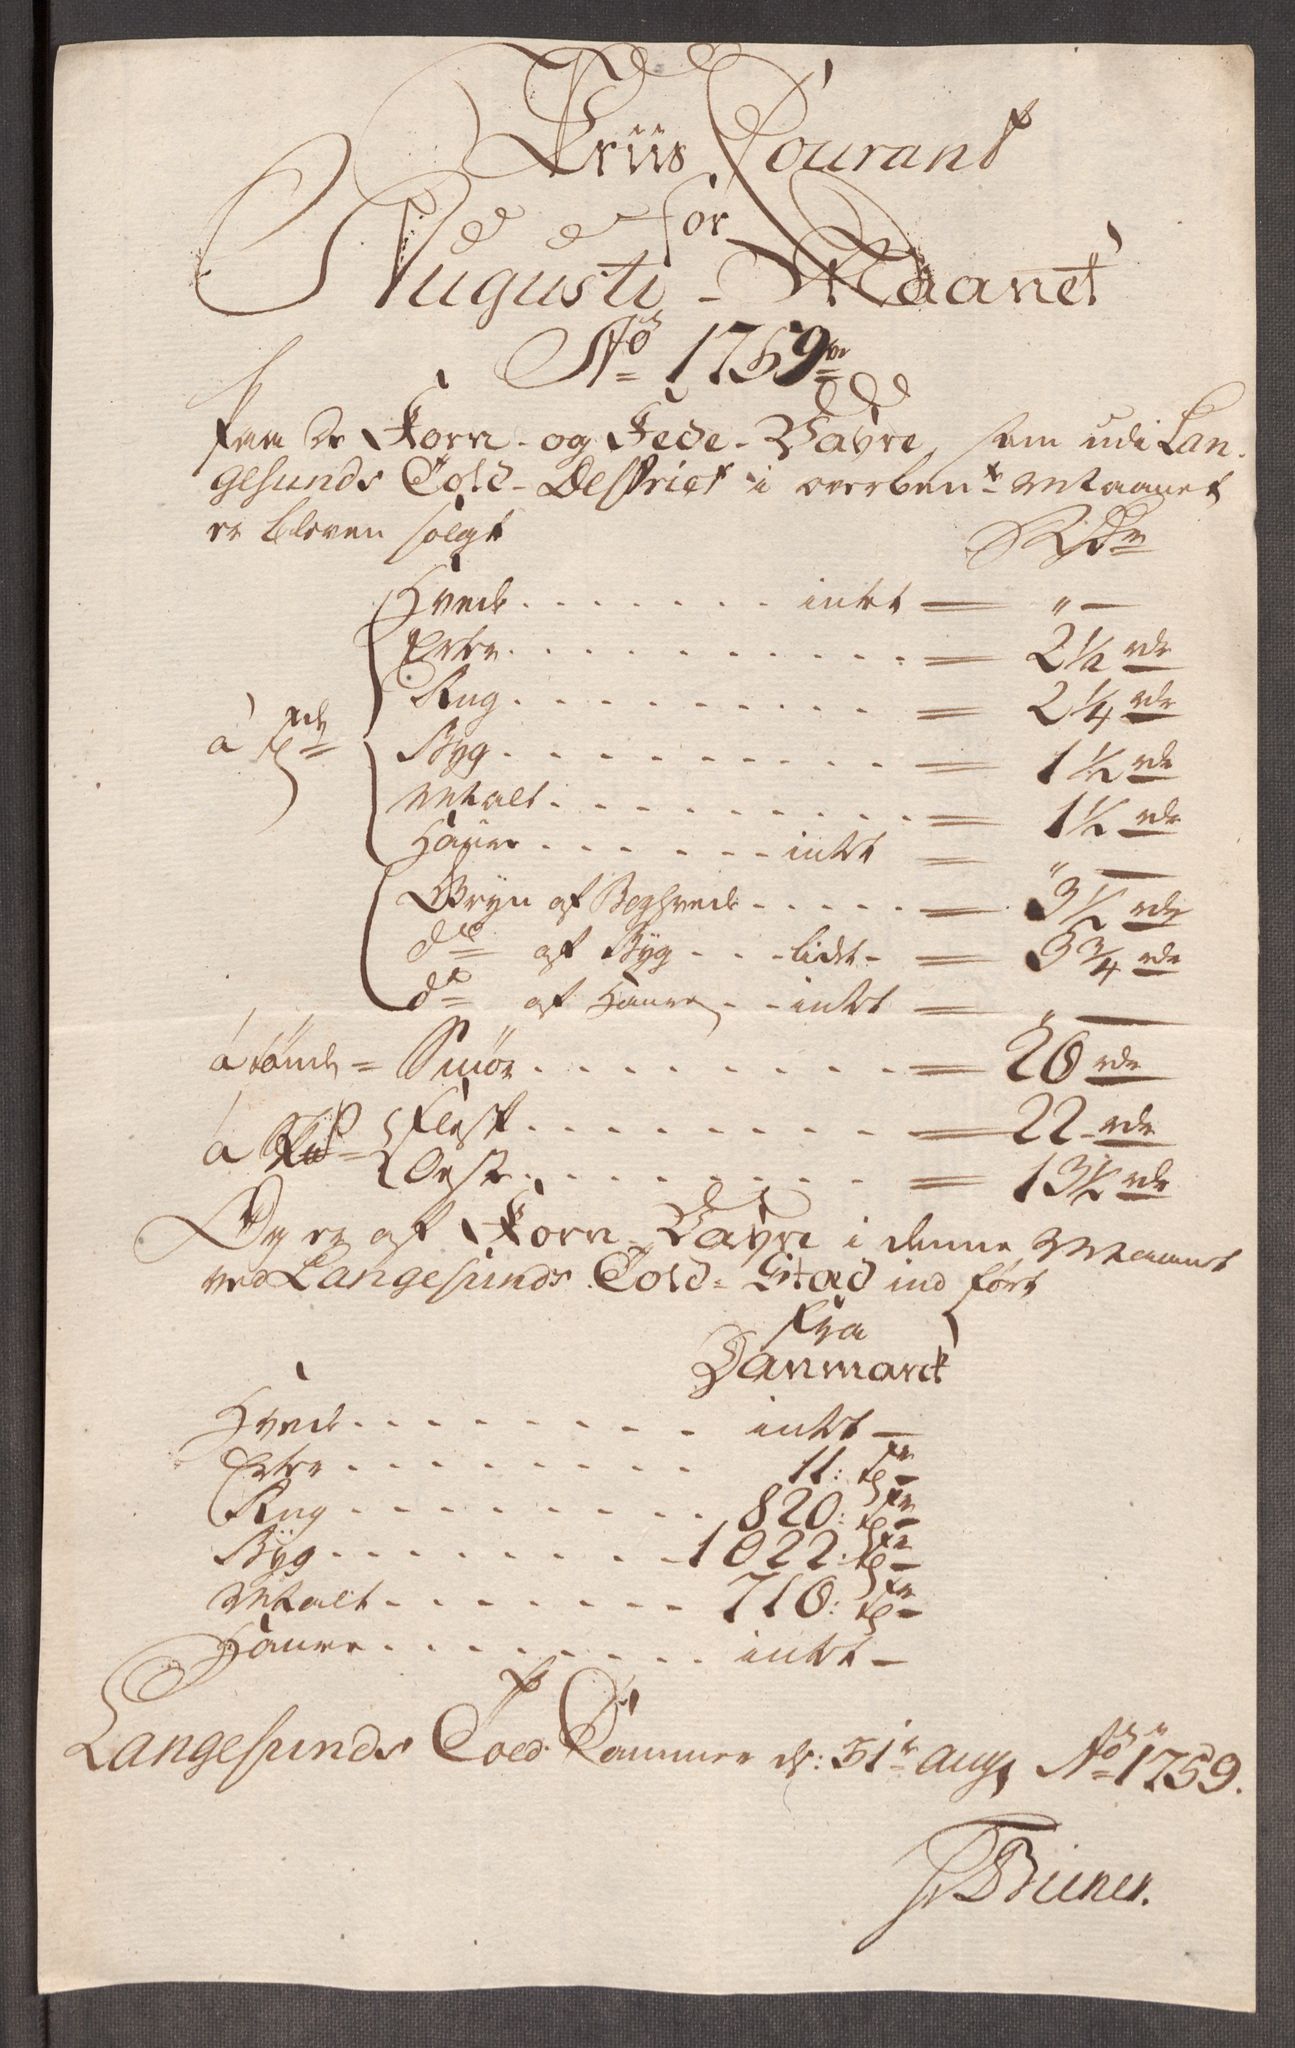 Priis Courant
for
Augusti - Maanet
Ao 1759ve
Paa de Korn- og Fede- Vahre, som udi Lan-
gesunds Told- Destrict i overbente Maanet
er bleven solgt
Rdr
Hvede . . . . . . . intet = " —
Erter . . . . . . . . . . = 2 1/2 rdr
Rug . . . . . . . . . = 2 1/4 rdr
à Tde
Byg . . . . . . . . . . = 1 1/2 rdr
Malt . . . . . . . . . . = 1 1/2 rdr
Haure . . . . . . intet = " —
Gryn af Boghvede . . . . . = 3 1/2 rdr
do af Byg . . . lidt - = 3 3/4 rdr
do af Haure - - intet = " —
à tønde = Smør . . . . . . . . . = 20 rdr
Flesk . . . . . . . . . = 22 rdr
à
Oxe . . . . . . . . = 13 1/2 rdr
Og er af Korn- Vahre i denne Maanet
ved Langesunds Told- Sted ind ført
Fra
Danmarck
Hvede . . . . . . . . intet —
Erter . . . . . . . . . 11: Tr
Rug . . . . . . . . . 820: Tr
Byg . . . . . . . . 1022: Tr
Malt . . . . . . . . 710: Tr
Haure . . . . . . . . . intet —
Langesunds Told Cammer d: 31te Augt Ao 1759.